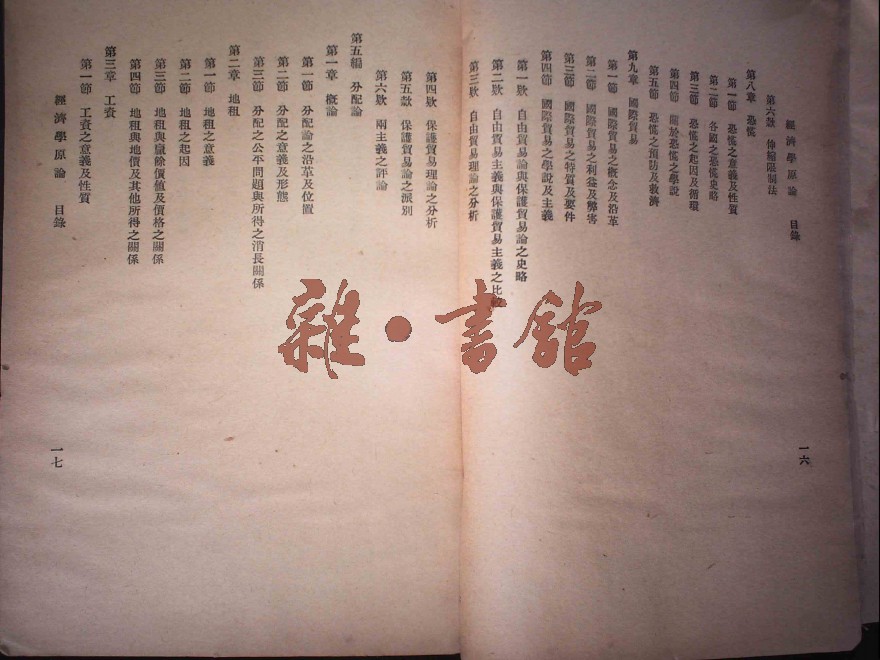 經濟學原論　目錄
第六欵　伸縮限制法
第八章　恐慌
第一節　恐慌之意義及性質
第二節　各國之恐慌史略
第三節　恐慌之起因及循環
第四節　關於恐慌之學說
第五節　恐慌之預防及救濟
第九章　國際貿易
第一節　國際貿易之概念及沿革
第二節　國際貿易之利益及弊害
第三節　國際貿易之特質及要件
第四節　國際貿易之學說及主義
第一欵　自由貿易論與保護貿易論之史略
第二欵　自由貿易主義與保護貿易主義之比較
第三欵　自由貿易理論之分析
一六
第四欵　保護貿易理論之分析
第五欵　保護貿易論之派別
第六欵　兩主義之評論
第五編　分配論
第一章　概論
第一節　分配論之沿革及位置
第二節　分配之意義及形態
第三節　分配之公平問題與所得之消長關係
第二章　地租
第一節　地租之意義
第二節　地租之起因
第三節　地租與贏餘價值及價格之關係
第四節　地租與地價及其他所得之關係
第三章　工資
第一節　工資之意義及性質
經濟學原論　目錄
一七
雜·書館